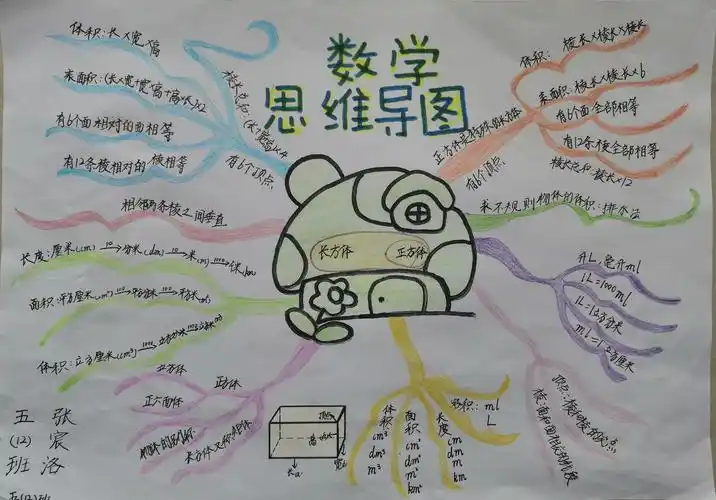 数学
思维导图
体积:长×宽×高
表面积:(长×宽+宽×高+高×长)×2
有6个面相对的面相等
有12条棱相对的棱相等
相邻两条棱之间垂直
长度:厘米(cm) 10 分米(dm) 10 米(m) 1000 千米 km
面积:平方厘米(cm²) 100 平方分米 100 平方米
体积:立方厘米(cm³) 1000 立方分米 1000 立方米
立方体
正方体
正六面体
长方体
正方体
体积:棱长×棱长×棱长
表面积:棱长×棱长×6
有6个面全部相等
有12条棱全部相等
棱长总和:棱长×12
正方体是特殊的长方体
求不规则物体的体积:排水法
升L 毫升ml
1L=1000ml
1L=1立方分米
ml=1立方厘米
容积:ml
L
体积
cm³
dm³
m³
面积
cm²
dm²
m²
km²
长度
cm
dm
m
km
五(12)班
张宸洛